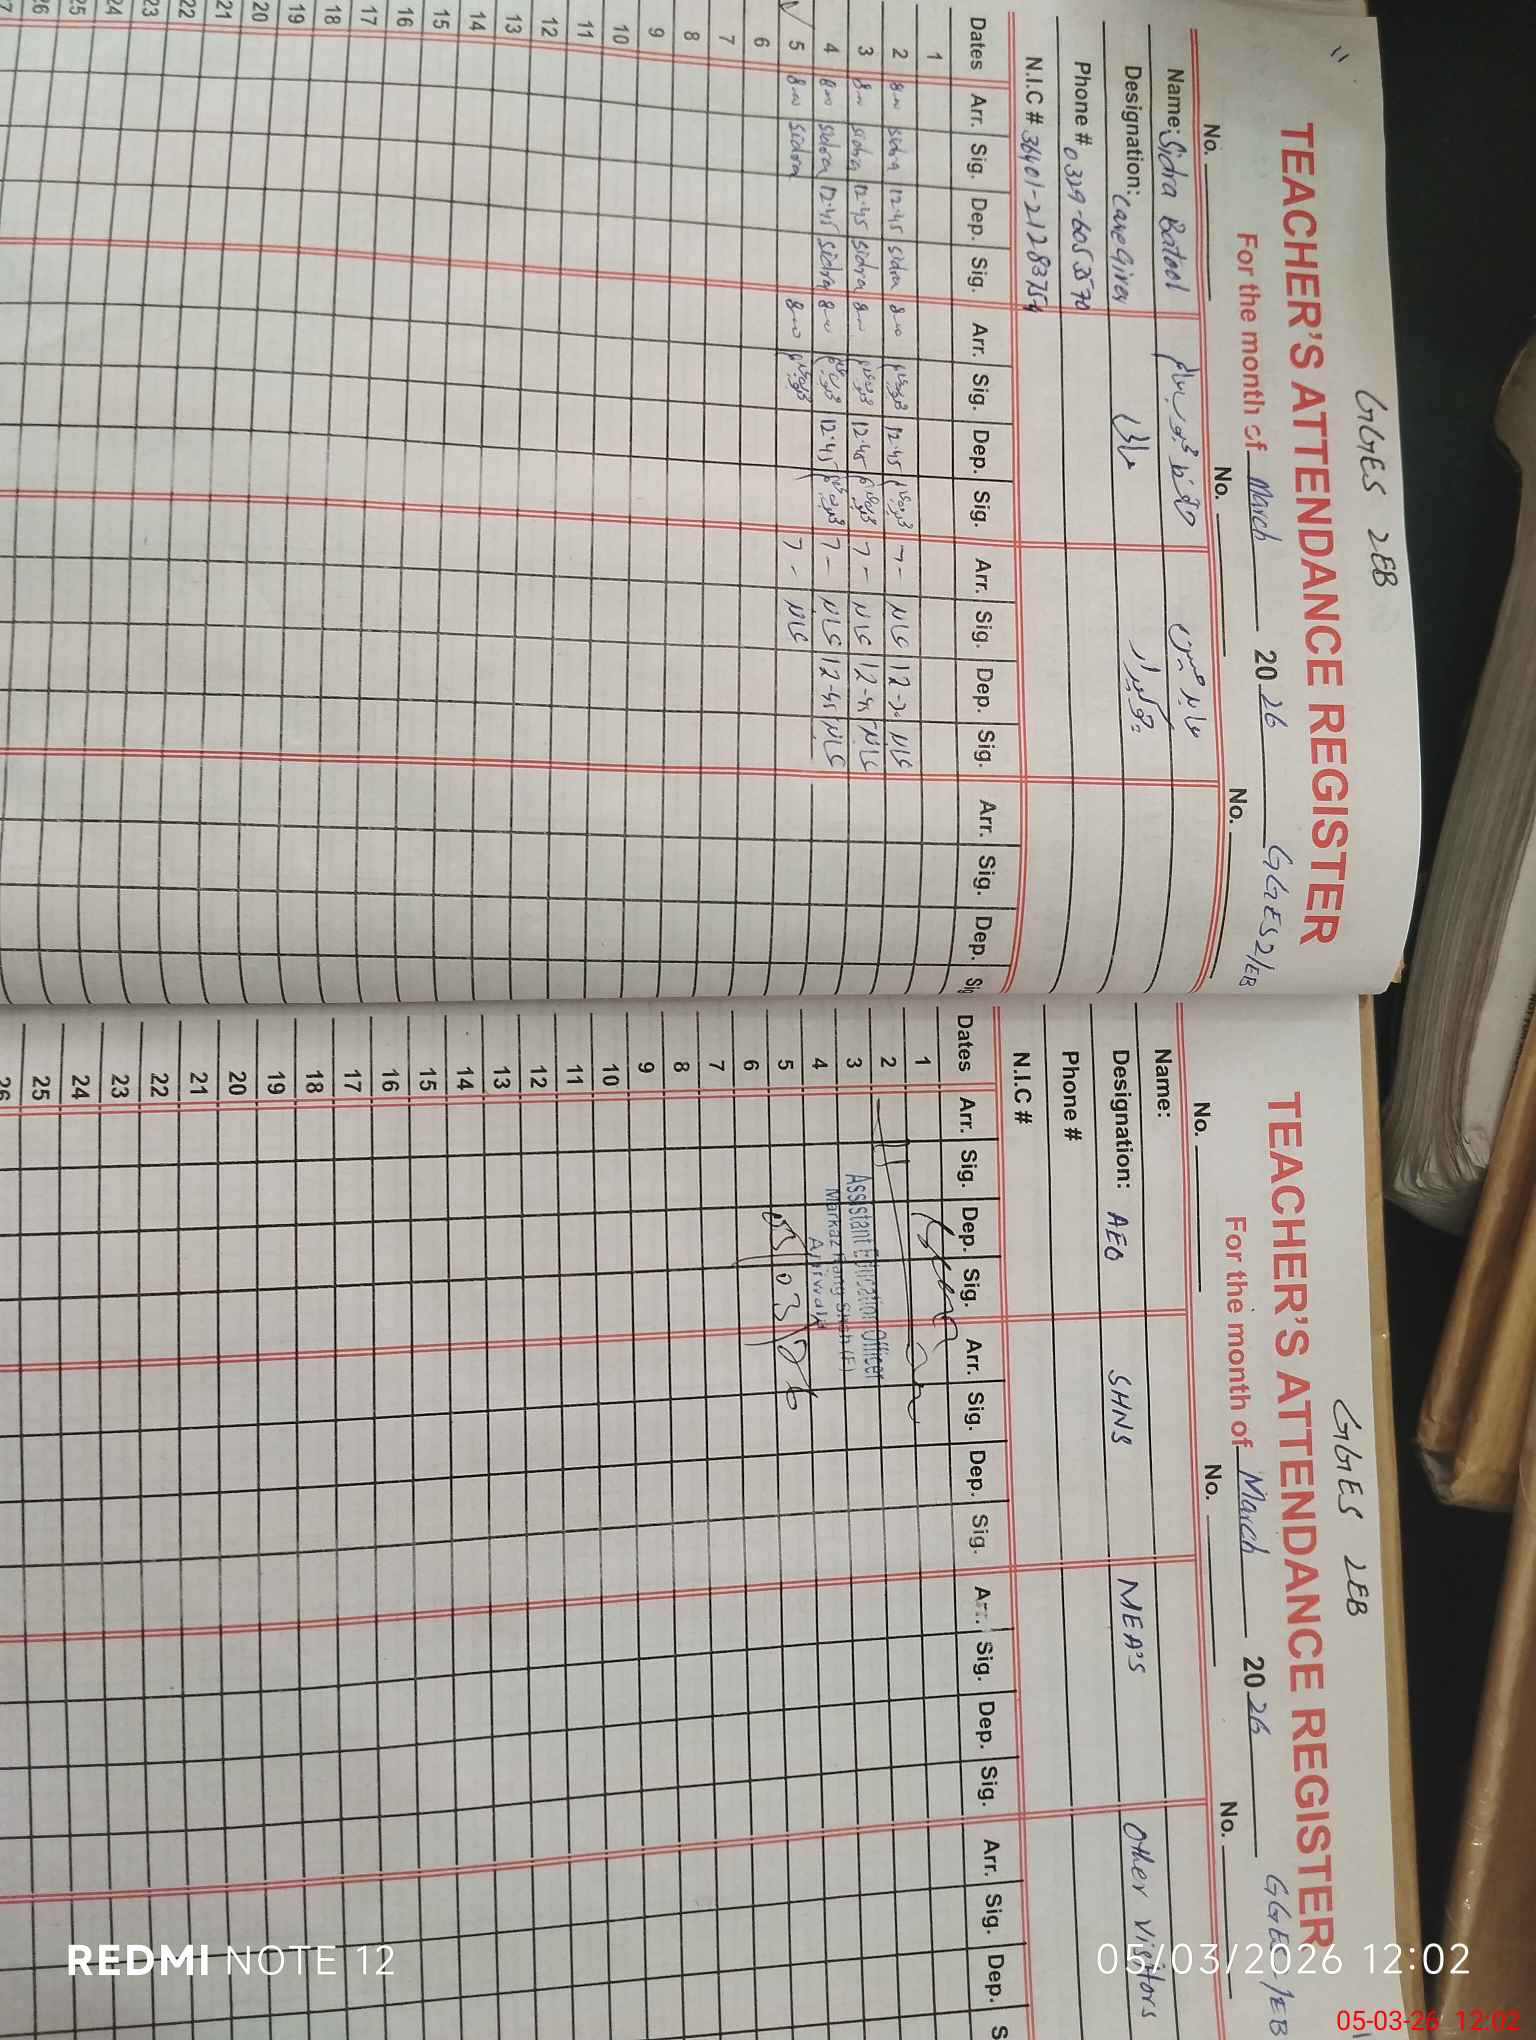 GGES 2EB
TEACHER'S ATTENDANCE REGISTER
For the month of March 2026 GGES 2/EB
No. No. No.
Name: Sidra Batool عابد حسین
Designation: Care Giver چوکیدار
Phone # 0329-6053570
N.I.C # 36401-21283754
Dates Arr. Sig. Dep. Sig. Arr. Sig. Dep. Sig. Arr. Sig. Dep. Sig. Arr. Sig. Dep. Sig
1
2 8:00 sidra 12:45 sidra 8:00 12:45 7 - 12-
3 8:00 sidra 12:45 sidra 8:00 12:45 7 - 12-45
4 8:00 sidra 12:45 sidra 8:00 12:45 7 - 12-45
5 8:00 sidra 8:00 7 -
6
7
8
9
10
11
12
13
14
15
16
17
18
19
20
21
22
23
24
25
26
27
GGES 2EB
TEACHER'S ATTENDANCE REGISTER
For the month of March 2026
No. No. No.
Name:
Designation: AEO SHNS MEA'S Other Visitors
Phone #
N.I.C #
Dates Arr. Sig. Dep. Sig. Arr. Sig. Dep. Sig. Arr. Sig. Dep. Sig. Arr. Sig. Dep. S
1
2
3 Assistant Education Officer
4 Markaz Rang Shah (F)
Arifwala
5 05/03/26
6
7
8
9
10
11
12
13
14
15
16
17
18
19
20
21
22
23
24
25
26
REDMI NOTE 12
05/03/2026 12:02
05-03-26 12:02